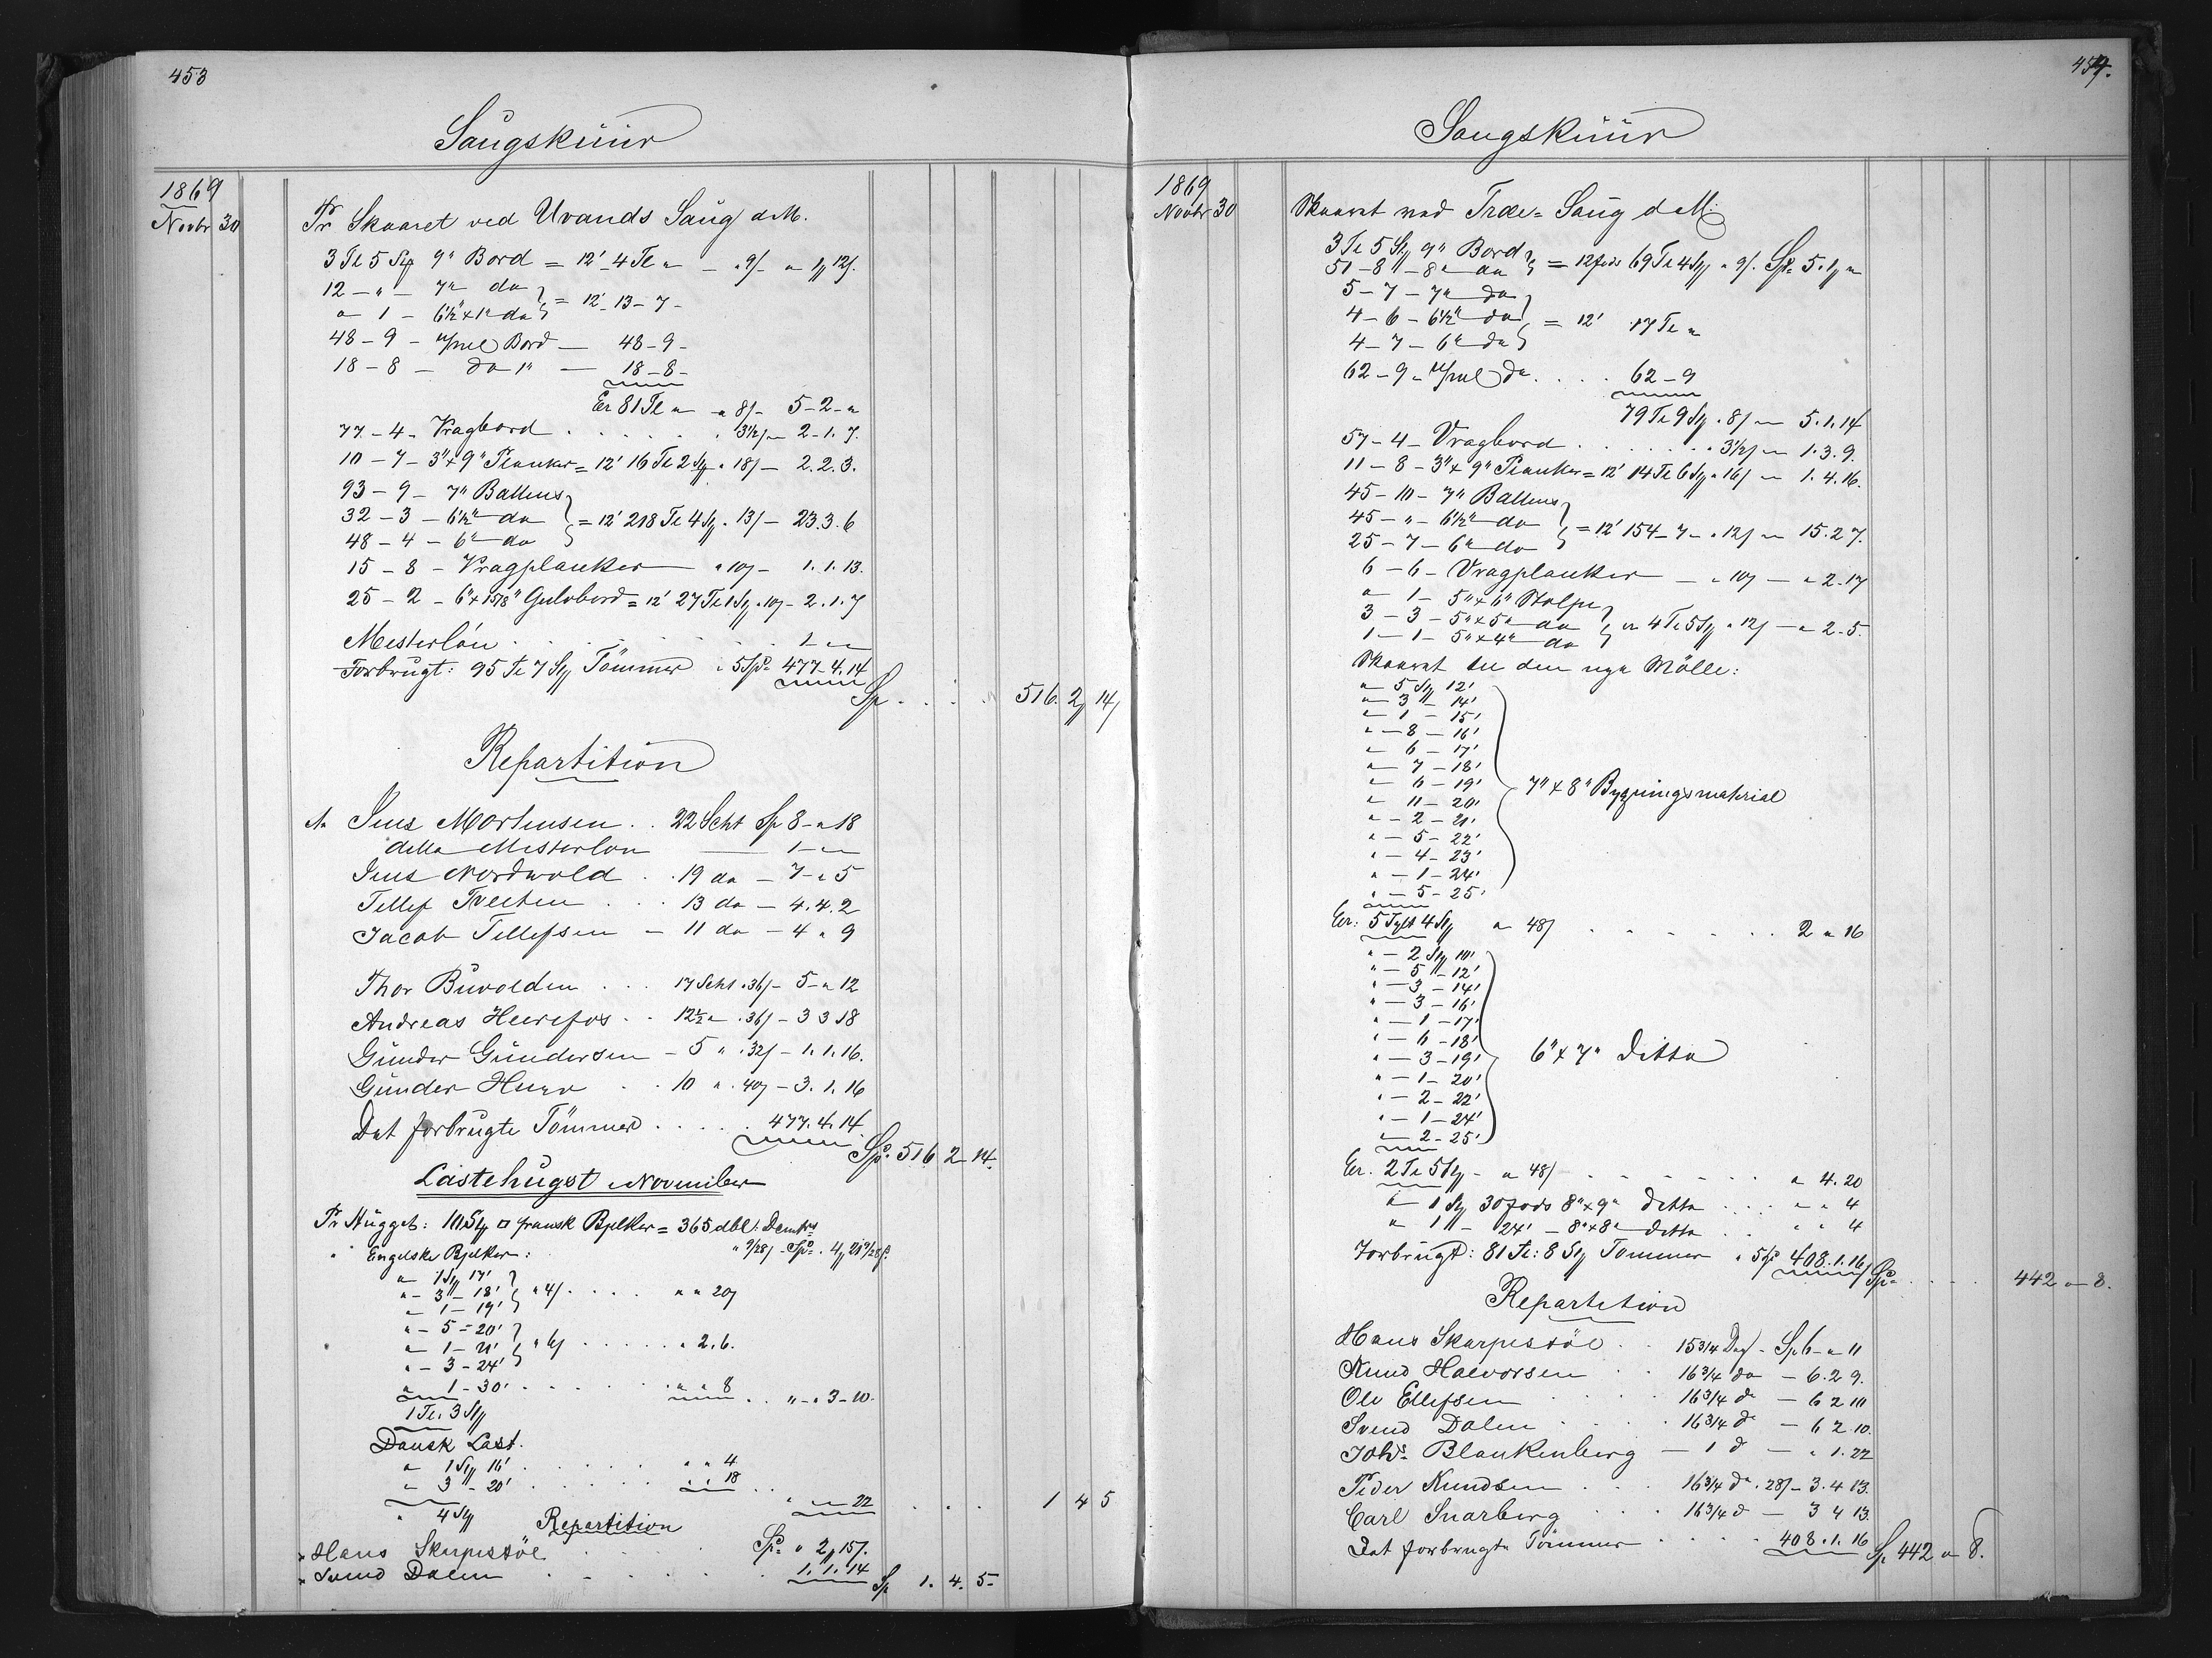 453
Saugskuur
1869
Novbr 30
Pr Skaaret ved Uvands Saug d.M.
3 Tl 5 Stg 9" Bord = 12' 4 Tl " - " 9/- " 1 12/.
12 - " - 7" do } = 12' 13 - 7 -
" 1 - 6½ x 1" do
48 - 9 - Bord - 48 - 9 -
18 - 8 - do 1" - 18 - 8 -
Er 81 Tl " " 8/- 5 - 2 - "
77 - 4 - Vragbord . . . . . " 3½/- 2 - 1. 7.
10 - 7 - 3" x 9" Planker = 12' 16 Tl 2 Stg " 18/- 2. 2. 3.
93 - 9 - 7" Battens
32 - 3 - 6½" do } = 12' 218 Tl 4 Stg " 13/- 23. 3. 6
48 - 4 - 6" do
15 - 8 - Vragplanker " 10/- 1. 1. 13.
25 - 2 - 6" x 1 5/8" Gulvbord = 12' 27 Tl 1 Stg " 10/- 2. 1. 7
Mesterlön . . . . . 1 - " -
Forbrugt: 95 Tl 7 Stg Tömmer " 5 Spd 477. 4. 14
Sp . . . 516. 2 14
Repartition
Jens Mortensen . . 22 Scht Sp 8 - " 18
detto Mesterlon 1 - " -
Jens Nordwold . . 19 do - 7 - " 5
Tellef Tveiten . . . 13 do - 4. 4. 2
Jacob Tellefsen - 11 do - 4 " 9
Thor Buvolden . . . 17 Scht " 36/- 5 - " 12
Andreas Heerefos . . 12½ " " 36/- 3 3 18
Gunder Gundersen - 5 " " 32/- 1. 1. 16.
Gunder Huro . . 10 " " 40/- 3. 1. 16
Det forbrugte Tömmer . . . . . 477. 4. 14.
Spd 516 2 - 14.
Lastehugst November
Pr Hugget: 10 Stg □ fransk Bjelker = 365 dbl:
" 9/28/ - Spd " 4 21 9/28 ß.
" Engelske Bjelker:
" 1 Stg 17'
" - 3 - 18' } " 4/. . . . . " " 20/
" 1 - 19'
" - 5 - 20'
" 1 - 21' } " 6/ . . . . . " 2. 6.
" - 3 - 24'
" 1 - 30' . . . . . " " 8 . . " - " 3 - 10.
1 Tl. 3 Stg
Dansk Last.
" 1 Stg 16' . . . . . " " 4
" 3 - 20' . . . . . " " 18
" 4 Stg " - " 22 . . . 1 4 5
Repartition
Hans Skarpestöl . . . . Spd " 2 15/.
Svend Dalen . . . . . 1. 1. 14 Sp 1. 4. 5 -
454.
Saugskuur
1869
Novbr 30
Skaaret ved Træ = Saug d.M:
3 Tl 5 Stg 9" Bord } = 12 fods 69 Tl 4 Stg " 9/. Spd 5. 1 "
51 - 8 - 8" do
5 - 7 - 7" do
4 - 6 - 6½" do } = 12' 17 Tl "
4 - 7 - 6" do
62 - 9 - do . . . . 62 - 9
79 Tl 9 Stg " 8/- 5. 1. 14
57 - 4 - Vragbord . . . . . " 3½/- 1. 3. 9.
11 - 8 - 3" x 9" Planker = 12' 14 Tl 6 Stg " 16/- 1. 4. 16.
45 - 10 - 7" Battens
45 - " - 6½" do } = 12' 154 - 7 - " 12/- 15. 2 7.
25 - 7 - 6" do
6 - 6 - Vragplanker - " 10/- " 2. 17
" 1 - 5" x 6" Stolpe
3 - 3 - 5" x 5" do } er 4 Tl 5 Stg " 12/- " 2. 5.
1 - 1 - 5" x 4" do
Skaaret til den nye Mölle:
" 5 Stg 12'
" 3 - 14'
" 1 - 15'
" - 8 - 16'
" 6 - 17'
" 7 - 18'
" 6 - 19' 7" x 8" Bygningsmaterial
" 11 - 20'
" - 2 - 21'
" - 5 - 22'
" - 4 - 23'
" - 1 - 24'
" - 5 - 25'
Er: 5 Tylt 4 Stg " 48/ . . . . . 2 " 16
" - 2 Stg 10'
" - 5 - 12'
" - 3 - 14'
" - 3 - 16'
" - 1 - 17'
" - 6 - 18'
" - 3 - 19' 6" x 7" Ditto
" - 1 - 20'
" - 2 - 22'
" - 1 - 24'
" - 2 - 25'
Er. 2 Tl 5 Stg - " 48/ . . . . . " 4. 20
" 1 Stg 30 fods 8" x 9" ditto . . . . " " 4
" 1 - 24' - 8" x 8" ditto . . " " 4
Forbrugt: 81 Tl: 8 Stg Tommer " 5 Spd 408. 1. 16/
Spd . . . . 442 " 8.
Repartition
Hans Skarpestöl . . 15 3/4 Dag - Sp 6 - " 11
Knud Halvorsen . . 16 3/4 do - 6. 2 9.
Ole Ellefsen . . . . 16 3/4 d - 6 2 10
Svend Dalen . . . . 16 3/4 d - 6 2 10.
Johs. Blankenberg - 1 d - " 1. 22
Peder Knudsen . . . 16 3/4 do " 28/- 3. 4 13.
Carl Snarberg . . 16 3/4 d - 3 4 13.
Det forbrugte Tömmer . . . . 408. 1. 16 Sp 442 " 8.